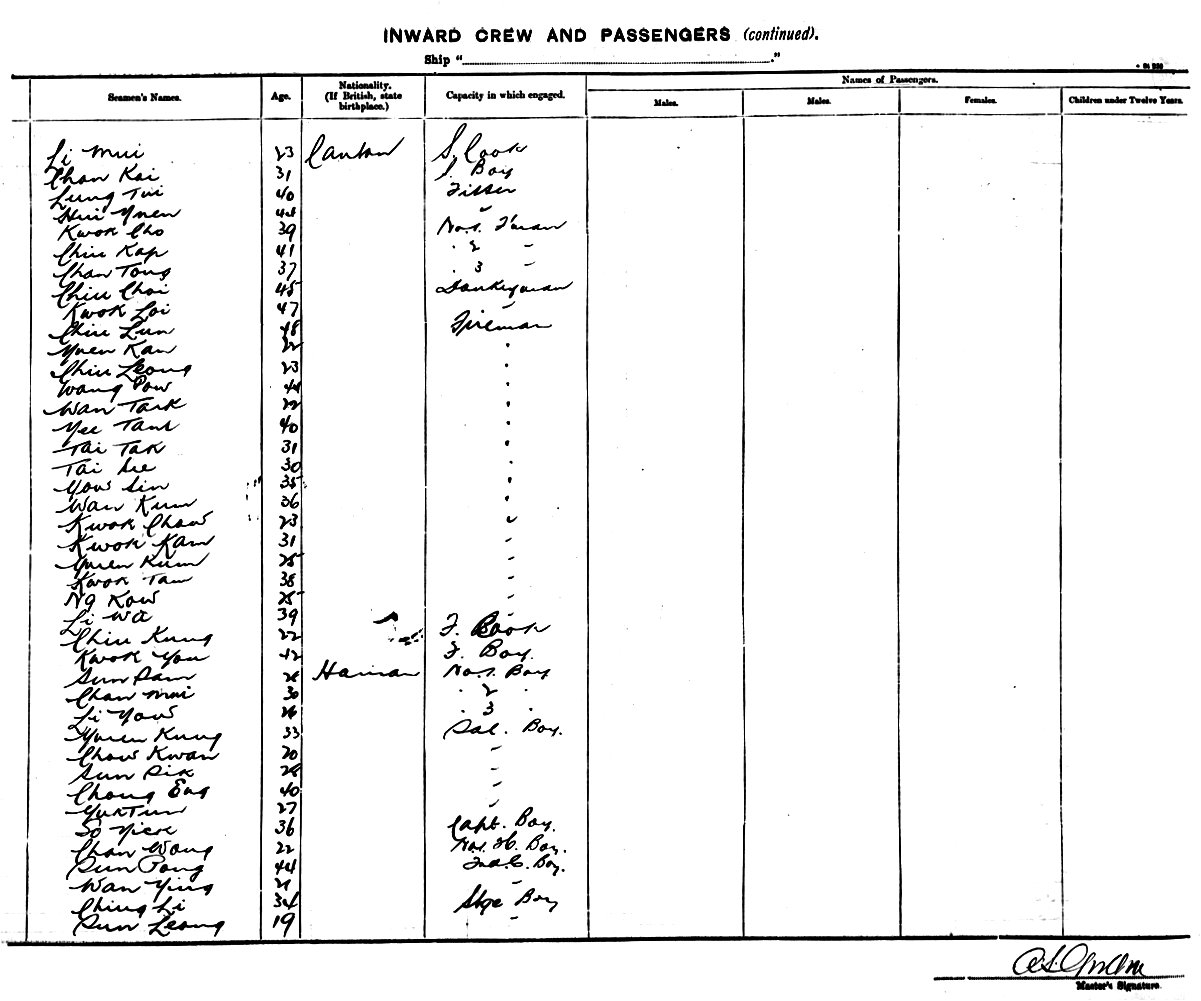 INWARD CREW AND PASSENGERS (continued).
Ship " ."
Seamen's Names. Age. Nationality. (If British, state birthplace.) Capacity in which engaged. Names of Passengers.
Males. Males. Females. Children under Twelve Years.
Li Mui 23 Canton S. Cook
Chan Kai 31 S. Boy
Lung Tui 40 Fitter
Hui Yuen 44 "
Kwok Cho 39 No. 1. F'man
Chiu Kap 41 " 2 "
Chan Tong 37 " 3 "
Chiu Choi 45 Donkeyman
Kwok Loi 47 "
Chiu Lun 48 Fireman
Yuen Kan 22 "
Chiu Leong 23 "
Wong Pow 44 "
Wan Tark 22 "
Yee Tant 40 "
Tai Tak 31 "
Tai See 30 "
Yow Sin 35 "
Wan Kum 36 "
Kwok Chow 23 "
Kwok Kam 31 "
Yuen Kum 25 "
Kwok Tam 38 "
Ng Kow 25 "
Li Wa 39 "
Chiu Kung 22 F. Cook
Kwok You 42 F. Boy.
Sun Pam 26 Hainan No. 1. Boy
Chan Mui 30 " 2 "
Li Yow 26 " 3 "
Yuen Kung 33 Sal. Boy.
Chow Kwan 20 "
Sun Pik 28 "
Chong Eng 40 "
Yuk Tun 27 "
So 36 Capt. Boy.
Chan Wong 22 Boy.
Sun Pong 44 Boy.
Wan Ying 21 "
Ching Li 34 Stge Boy
Sun Leong 19 "
Master's Signature.